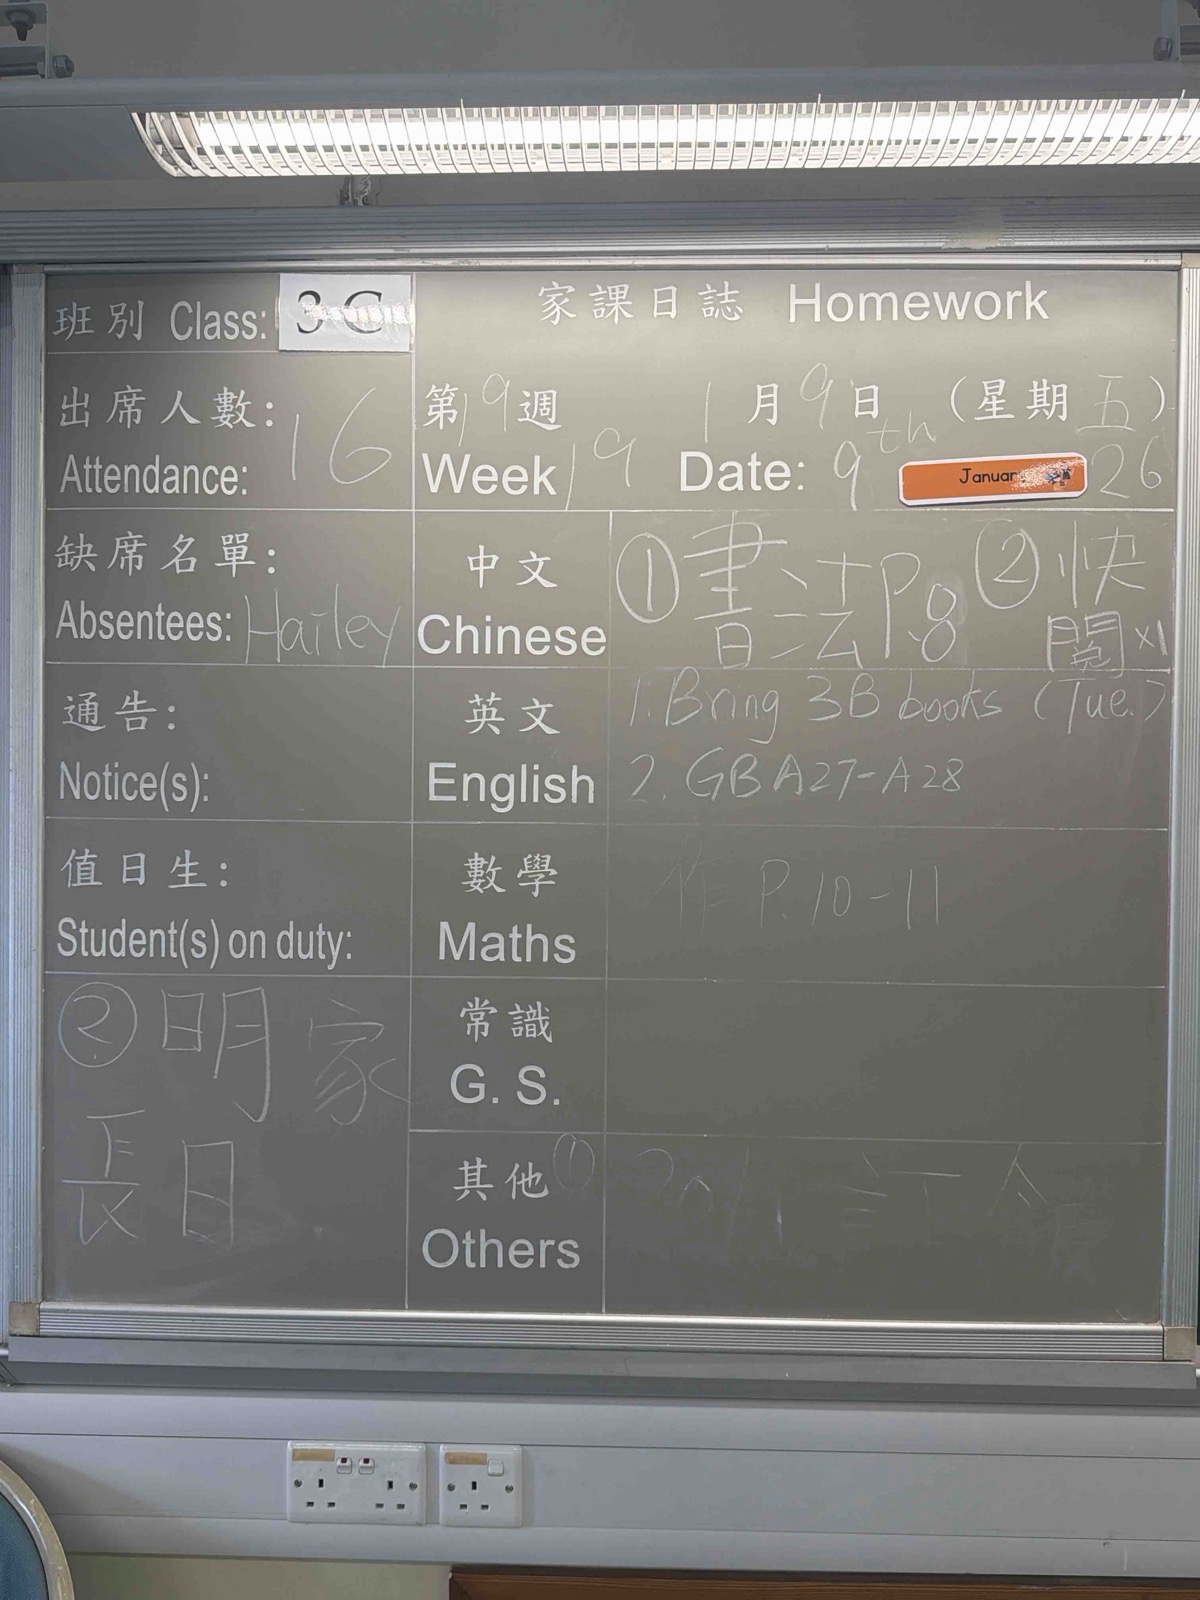 班別 Class: 3C
家課日誌 Homework
出席人數:
Attendance: 16
第19週 1月9日 (星期五)
Week 19 Date: 9th Januar 26
缺席名單:
Absentees: Hailey
中文
Chinese
①書法P.8 ②快閱x1
通告:
Notice(s):
英文
English
1. Bring 3B books (Tue.)
2. GB A27-A28
值日生:
Student(s) on duty:
數學
Maths
作 P.10-11
②明家
長日
常識
G. S.
其他①
Others